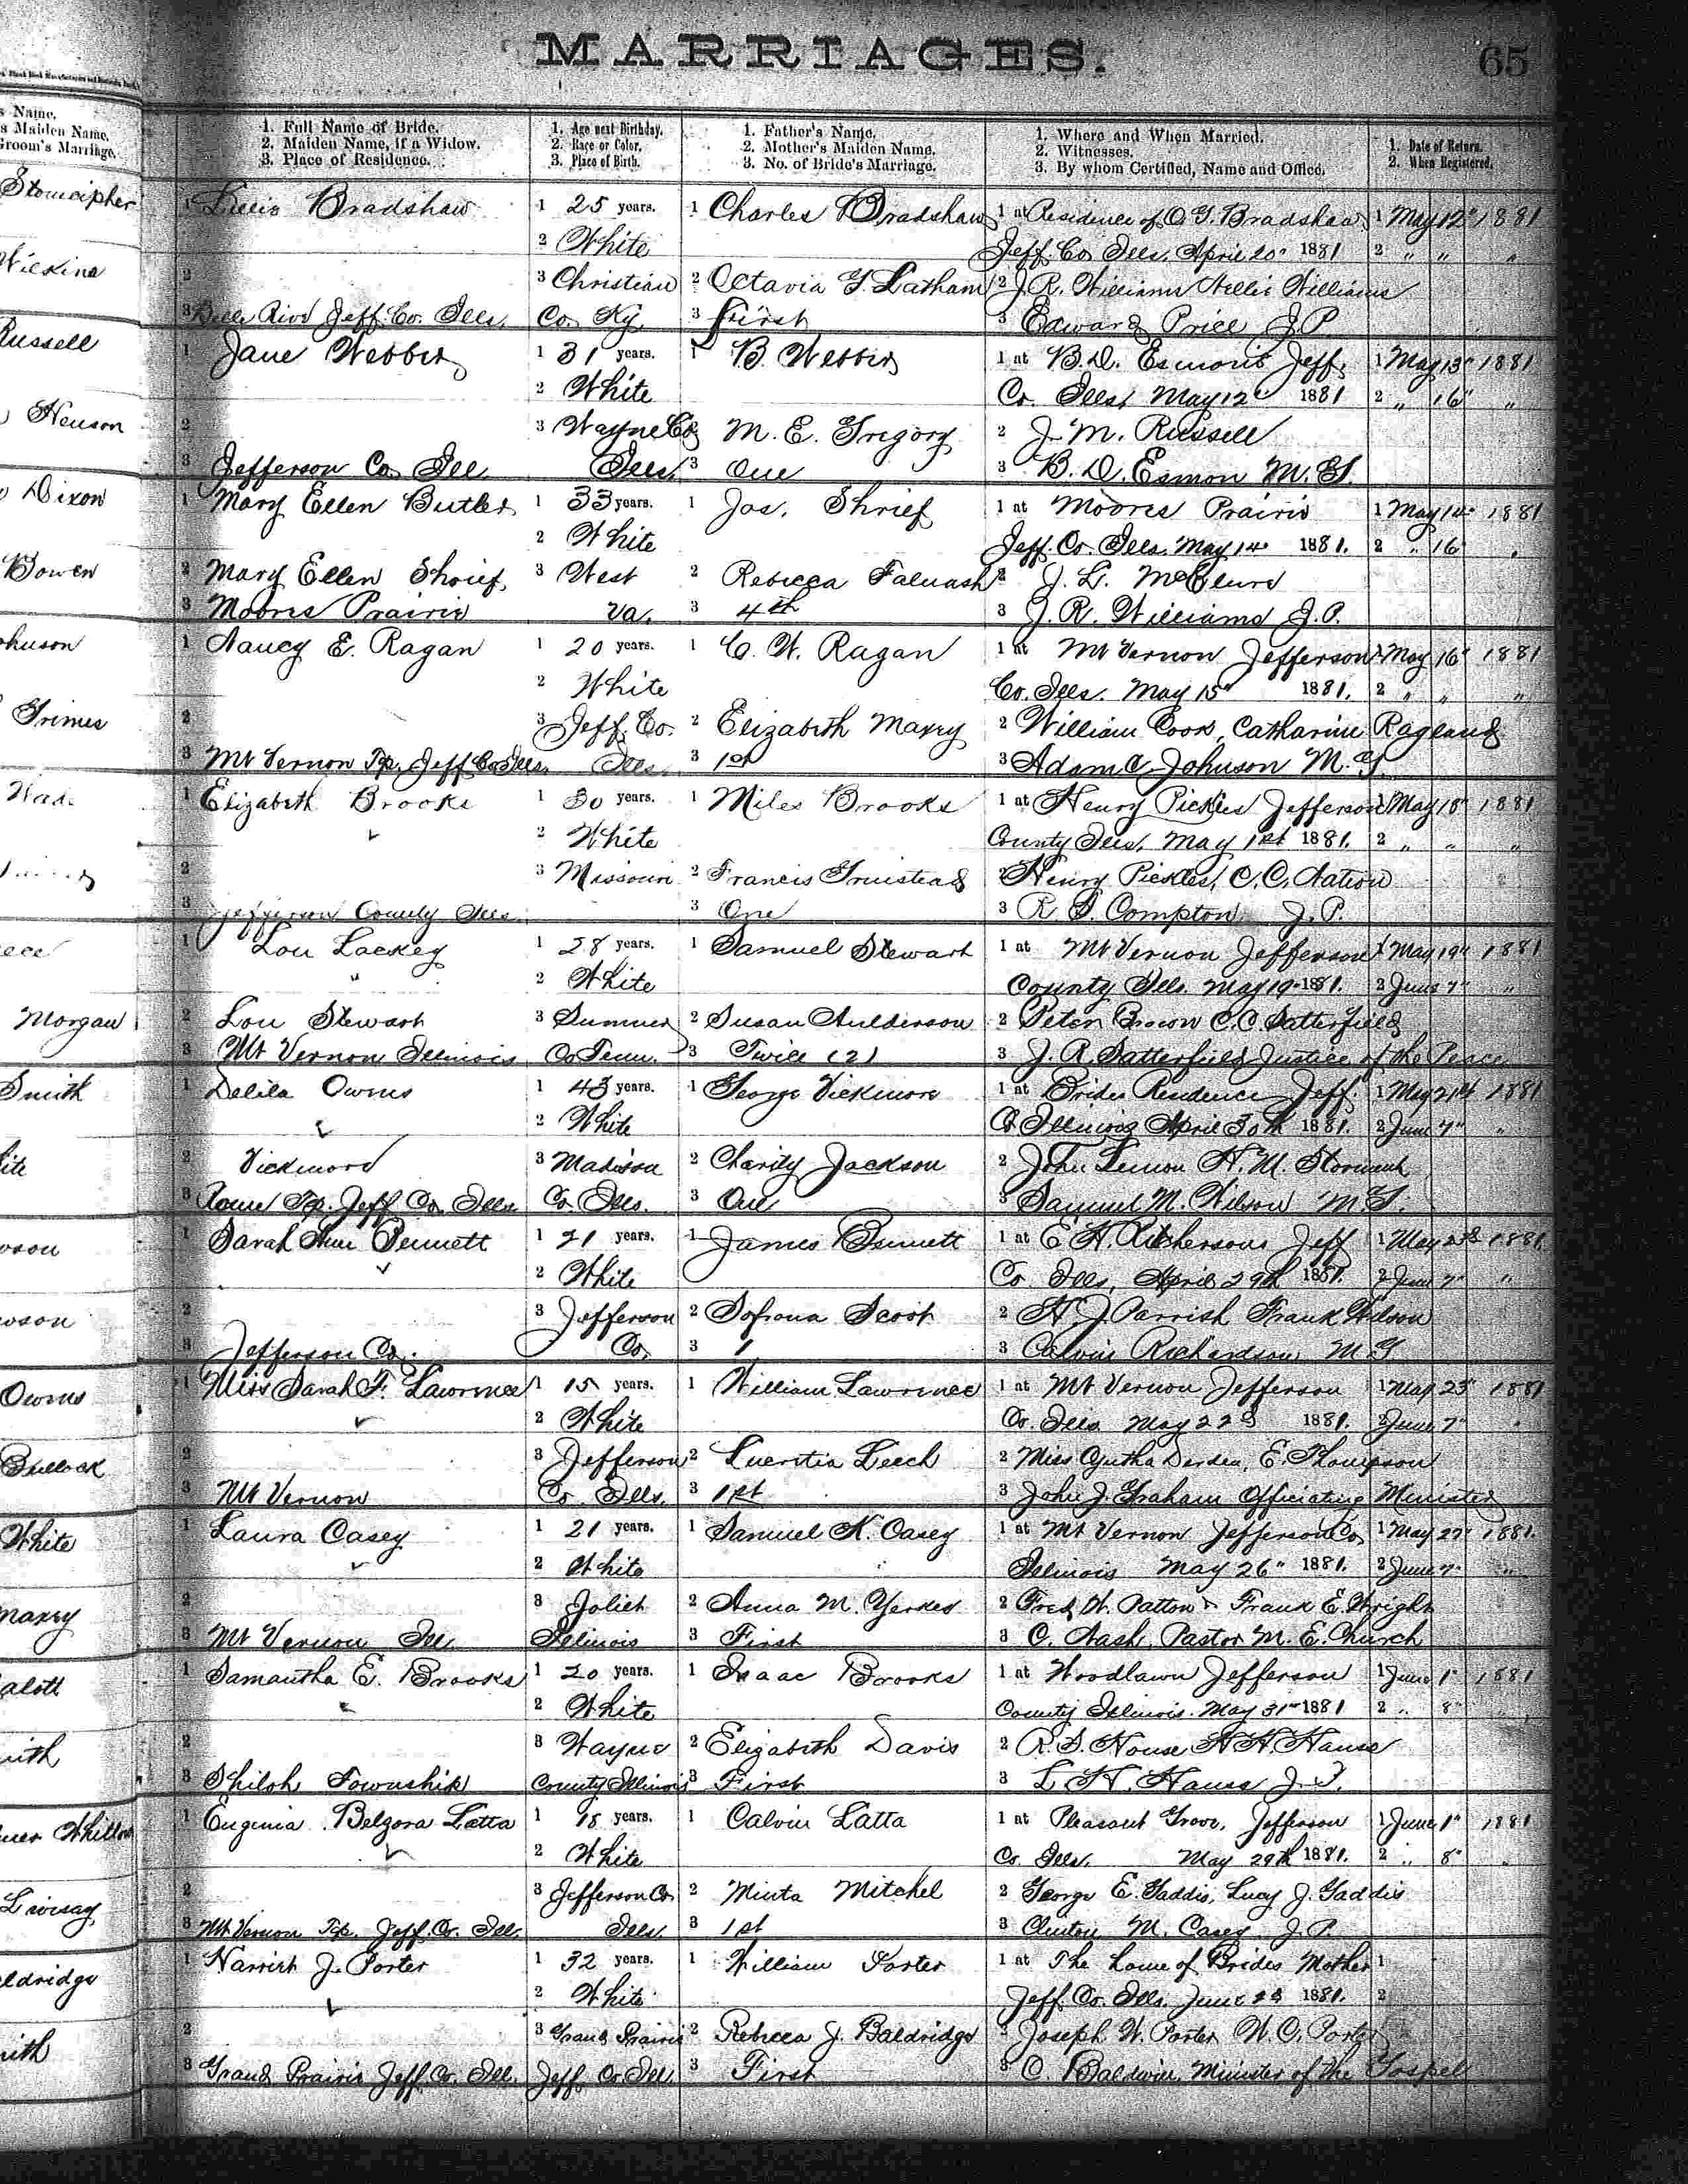 MARRIAGES.
65
s Name.
s Maiden Name.
Groom's Marriage.
1. Full Name of Bride.
2. Maiden Name, if a Widow.
3. Place of Residence.
1. Age next Birthday.
2. Race or Color.
3. Place of Birth.
1. Father's Name.
2. Mother's Maiden Name.
3. No. of Bride's Marriage.
1. Where and When Married.
2. Witnesses.
3. By whom Certified, Name and Office.
1. Date of Return.
2. When Registered.
Stomcipher
Wilkins
Russell
Heuson
Dixon
Bowen
ohnson
Grimes
Wad
eece
Morgan
Smith
ite
wson
wson
Owens
Bullock
White
Maxey
alott
mith
Livisay
aldridge
mith
1 Lillie Bradshaw 1 25 years. 1 Charles Bradshaw 1 at Residence of O. G. Bradshaw 1 May 12" 1881
2 White Jeff. Co. Ills. April 20" 1881 2 " " "
2 3 Christian 2 Octavia G. Latham 2 J. R. Williams Willis Williams
3 Jeff. Co. Ills. Co. Ky 3 First 3 Edward Price J.P.
1 Jane Webber 1 31 years. 1 B. Webber 1 at B. D. Esmon's Jeff. 1 May 13" 1881
2 White Co. Ills, May 12" 1881 2 " 16" "
2 3 Wayne Co. M. E. Gregory 2 J. M. Russell
3 Jefferson Co. Ill. Ills. 3 One 3 B. D. Esmon M. G.
1 Mary Ellen Butler 1 33 years. 1 Jas. Shrief 1 at Moores Prairie 1 May 14" 1881
2 White Jeff. Co. Ills. May 14" 1881. 2 " 16" "
2 Mary Ellen Shrief 3 West 2 Rebecca 2 J. L. McClure
3 Moores Prairie Va. 3 4th 3 J. R. Williams J.P.
1 Nancy E. Ragan 1 20 years. 1 C. W. Ragan 1 at Mt Vernon Jefferson 1 May 16" 1881
2 White Co. Ills. May 15" 1881. 2 " " "
2 3 Jeff. Co. 2 Elizabeth Maxey 2 William Cook, Catharine Ragland
3 Mt Vernon Tp. Jeff Co Ills. Ills. 3 1st 3 Adam C Johnson M. G.
1 Elizabeth Brooks 1 30 years. 1 Miles Brooks 1 at Henry Pickles Jefferson 1 May 18" 1881
2 White County Ills, May 1st 1881. 2 " " "
2 3 Missouri 2 Francis 2 Henry Pickles, C. C. Nation
3 Jefferson County Ills. 3 One 3 R. S. Compton J.P.
1 Lou Lackey 1 28 years. 1 Samuel Stewart 1 at Mt Vernon Jefferson 1 May 19" 1881
" 2 White County Ills. May 19" 1881. 2 June 7" "
2 Lou Stewart 3 Sumner 2 Susan Anlderson 2 Peter Brown C. C. Satterfield
3 Mt Vernon Illinois Co Tenn. 3 Twice (2) 3 J. R. Satterfield Justice of the Peace
1 Delila Owens 1 43 years. 1 George Vickmore 1 at Brides Residence Jeff. 1 May 21st 1881
2 White Co Illinois April 30th 1881. 2 June 7" "
2 Vickmore 3 Madison 2 Charity Jackson 2 John Lemon H. M.
3 Rome Tp. Jeff Co. Ills. Co. Ills. 3 One 3 Samuel M. Wilson M. G.
1 Sarah Ann Bennett 1 21 years. 1 James Bennett 1 at E. H. Richersons Jeff 1 May 23d 1881
2 White Co Ills, April 29th 1881. 2 June 7" "
2 3 Jefferson 2 Sofrona Scott 2 H. J. Parrish Frank Wilson
3 Jefferson Co. Co. 3 1 3 Calvin Richardson M. G.
1 Miss Sarah F. Lawrence 1 15 years. 1 William Lawrence 1 at Mt Vernon Jefferson 1 May 23" 1881
2 White Co. Ills. May 22d 1881. 2 June 7" "
2 3 Jefferson 2 Lucretia Leech 2 Miss Cyntha Derden, E. Thompson
3 Mt Vernon Co. Ills. 3 1st 3 John J. Graham Officiating Minister
1 Laura Casey 1 21 years. 1 Samuel K. Casey 1 at Mt Vernon Jefferson Co 1 May 27" 1881.
2 White Illinois May 26" 1881. 2 June 7" "
2 3 Joliet 2 Anna M. Yerkes 2 Fred W. Patton & Frank E. Wright
3 Mt Vernon Ill Illinois 3 First 3 C. Nash Pastor M. E. Church
1 Samantha E. Brooks 1 20 years. 1 Isaac Brooks 1 at Woodlawn Jefferson 1 June 1" 1881
2 White County Illinois. May 31st 1881 2 " 8"
2 3 Wayne 2 Elizabeth Davis 2 R. S. House
3 Shiloh Township County Illinois 3 First 3 L. H. Hauss
1 Eugenia Belzora Latta 1 18 years. 1 Calvin Latta 1 at Pleasant Grove, Jefferson 1 June 1" 1881
2 White Co. Ills. May 29th 1881. 2 " 8" "
2 3 Jefferson Co 2 Minta Mitchel 2 George E. Gaddis, Lucy J. Gaddis
3 Mt Vernon Tp. Jeff. Co. Ill. Ills. 3 1st 3 Clinton M. Casey J.P.
1 Harriet J. Porter 1 32 years. 1 William Porter 1 at The home of Brides Mother 1
2 White Jeff. Co. Ills. June 2d 1881. 2
2 3 Grand Prairie 2 Rebecca J. Baldridge 2 Joseph W. Porter W. C. Porter
3 Grand Prairie Jeff. Co. Ill. Jeff. Co Ill. 3 First 3 C Baldwin, Minister of the Gospel